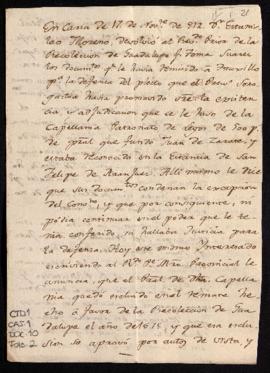 En Carta de 17 de Nov.e de 812 D.n Estanis-
lao Moreno, devolvió al Rev.o Prior de la
Recoleccion de Guadalupe f. Toma Suarez
los docum.tos q.e le havia remitido a
p.a la defensa del pleito que el Presv.o
havia promovido sre la existen
cia, y adjudicacion que se le hiso de la
Capellania Patronato de Legos de 500 p.s
de pral que fundó Juan de Zarate, y
estaba reconocido en la Estancia de San
Felipe de Alli mismo le dice
que sus docum.tos condenan la excepcion
del Conv.to, y que por consiguiente, ni
podia continuar en el poder que le te
nia conferido, ni hallaba Justicia para
la defensa. Hoy este mismo Interesado
escriviendo al R. P. Mro Provincial le
anuncia, que el Pral de dha Capella
nia quedó incluido en el remate he
cho a favor de la Recoleccion de Gua
dalupe el año de 1675, y que su exclu
sion se aprovó por autos de vista, y